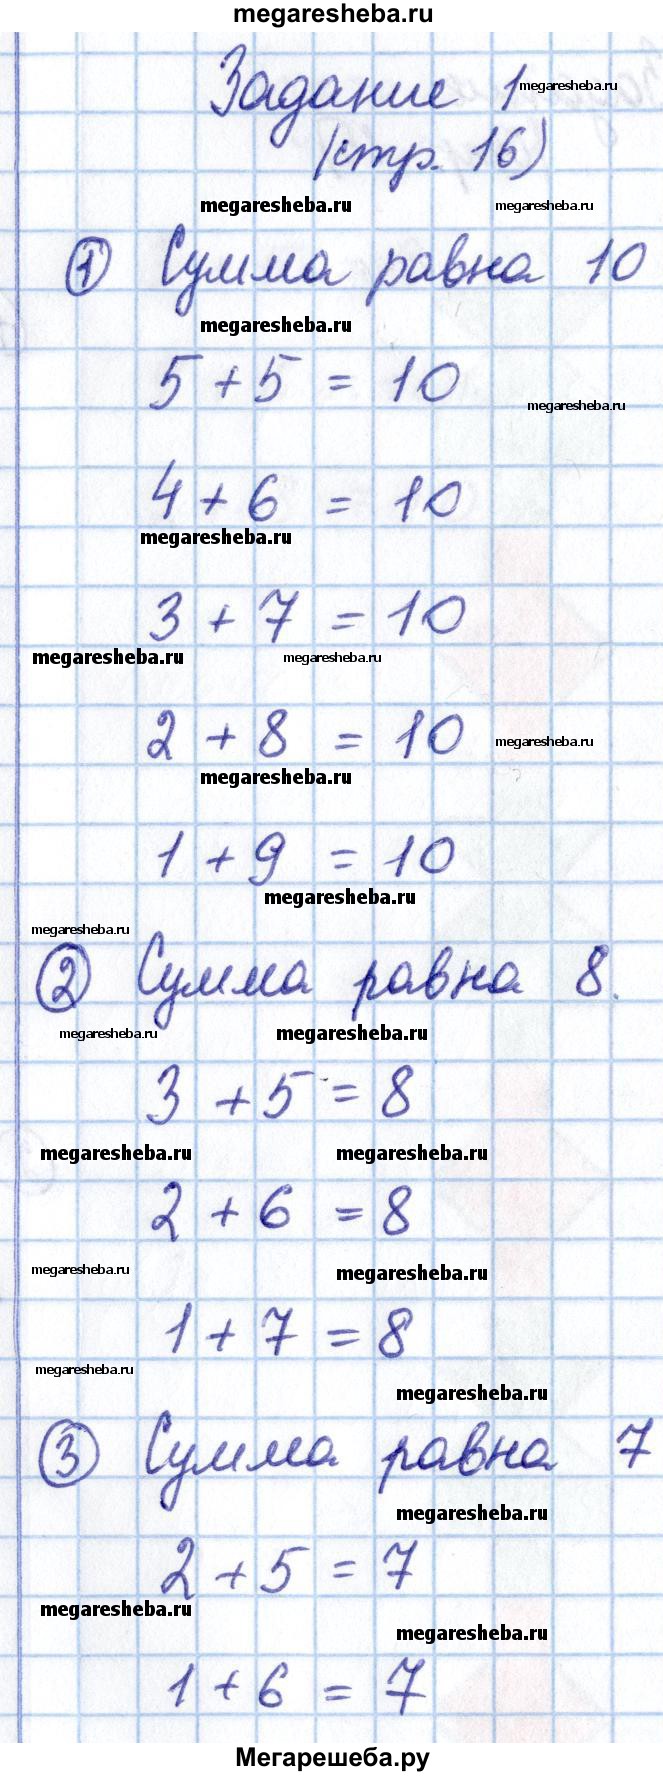 megaresheba.ru
Задание 1 megaresheba.ru
(стр. 16)
megaresheba.ru megaresheba.ru
① Сумма равна 10
megaresheba.ru
5 + 5 = 10
megaresheba.ru
4 + 6 = 10
megaresheba.ru
3 + 7 = 10
megaresheba.ru megaresheba.ru
2 + 8 = 10 megaresheba.ru
megaresheba.ru
1 + 9 = 10
megaresheba.ru
megaresheba.ru
② Сумма равна 8.
megaresheba.ru megaresheba.ru
3 + 5 = 8
megaresheba.ru megaresheba.ru
2 + 6 = 8
megaresheba.ru megaresheba.ru
1 + 7 = 8
megaresheba.ru
megaresheba.ru
③ Сумма равна 7
megaresheba.ru
2 + 5 = 7
megaresheba.ru
megaresheba.ru
1 + 6 = 7
Мегарешеба.ру